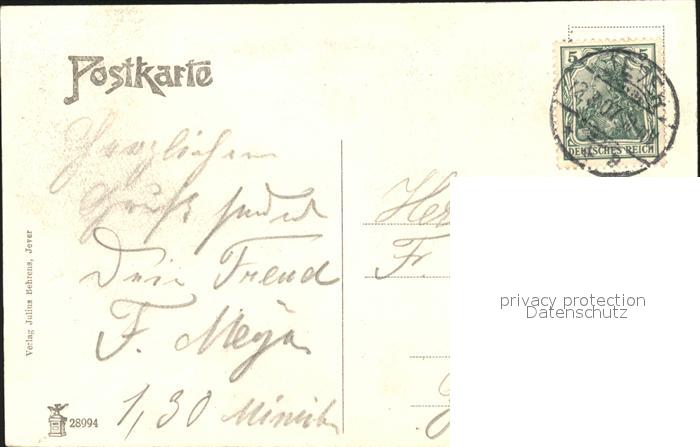 Postkarte
5
DEUTSCHES REICH
Herzlichen
Gruß sendet
Dein Freud
F. Meyer
1,30
Her
F.
privacy protection
Datenschutz
Verlag Julius Behrens, Jever
28994